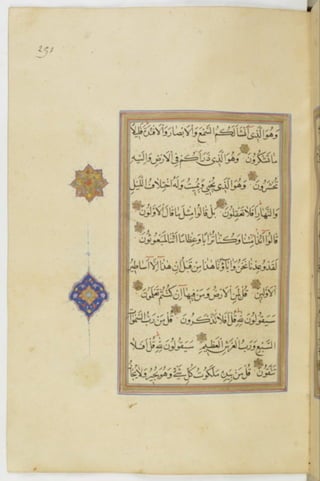 291
وَهُوَ الَّذِي أَنْشَأَ لَكُمُ السَّمْعَ وَالْأَبْصَارَ وَالْأَفْئِدَةَ قَلِيلًا
مَا تَشْكُرُونَ وَهُوَ الَّذِي ذَرَأَكُمْ فِي الْأَرْضِ وَإِلَيْهِ
تُحْشَرُونَ وَهُوَ الَّذِي يُحْيِي وَيُمِيتُ وَلَهُ اخْتِلَافُ اللَّيْلِ
وَالنَّهَارِ أَفَلَا تَعْقِلُونَ بَلْ قَالُوا مِثْلَ مَا قَالَ الْأَوَّلُونَ
قَالُوا أَئِذَا مِتْنَا وَكُنَّا تُرَابًا وَعِظَامًا أَئِنَّا لَمَبْعُوثُونَ
لَقَدْ وُعِدْنَا نَحْنُ وَآبَاؤُنَا هَذَا مِنْ قَبْلُ إِنْ هَذَا إِلَّا أَسَاطِيرُ
الْأَوَّلِينَ قُلْ لِمَنِ الْأَرْضُ وَمَنْ فِيهَا إِنْ كُنْتُمْ تَعْلَمُونَ
سَيَقُولُونَ لِلَّهِ قُلْ أَفَلَا تَذَكَّرُونَ قُلْ مَنْ رَبُّ السَّمَوَاتِ
السَّبْعِ وَرَبُّ الْعَرْشِ الْعَظِيمِ سَيَقُولُونَ لِلَّهِ قُلْ أَفَلَا
تَتَّقُونَ قُلْ مَنْ بِيَدِهِ مَلَكُوتُ كُلِّ شَيْءٍ وَهُوَ يُجِيرُ وَلَا يُجَارُ